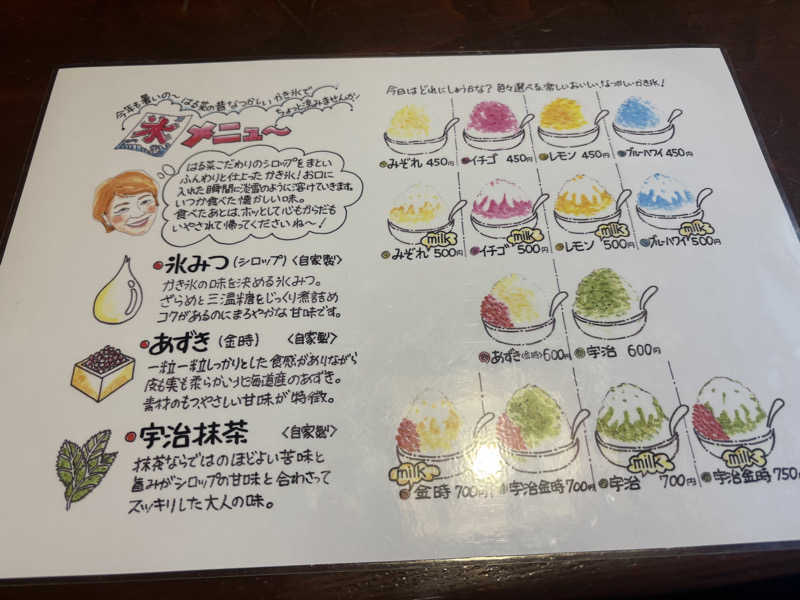 今年も暑いの〜 はる菜の昔なつかしい かき氷で
ちょっと涼みませんか!
氷 メニュ〜
はる菜こだわりのシロップをまとい
ふんわりと仕上った かき氷！お口に
入れた瞬間に淡雪のように溶けていきます。
いつか食べた懐かしい味。
食べたあとは、ホッとして心もからだも
いやされて帰ってくださいね〜！
氷みつ (シロップ) 〈自家製〉
かき氷の味を決める氷みつ。
ざらめと三温糖をじっくり煮詰め
コクがあるのにまろやかな甘味です。
あずき (金時) 〈自家製〉
一粒一粒しっかりとした食感がありながら
皮も実も柔らかい北海道産のあずき。
素材のもつやさしい甘味が特徴。
宇治抹茶 〈自家製〉
抹茶ならではのほどよい苦味と
旨みがシロップの甘味と合わさって
スッキリした大人の味。
今日はどれにしようかな？ 色々選べる楽しいおいしい、なつかしいかき氷！
みぞれ 450円 イチゴ 450円 レモン 450円 ブルーハワイ 450円
milk milk milk milk
みぞれ 500円 イチゴ 500円 レモン 500円 ブルーハワイ 500円
あずき(金時) 600円 宇治 600円
milk milk milk
金時 700円 宇治金時 700円 宇治 700円 宇治金時 750